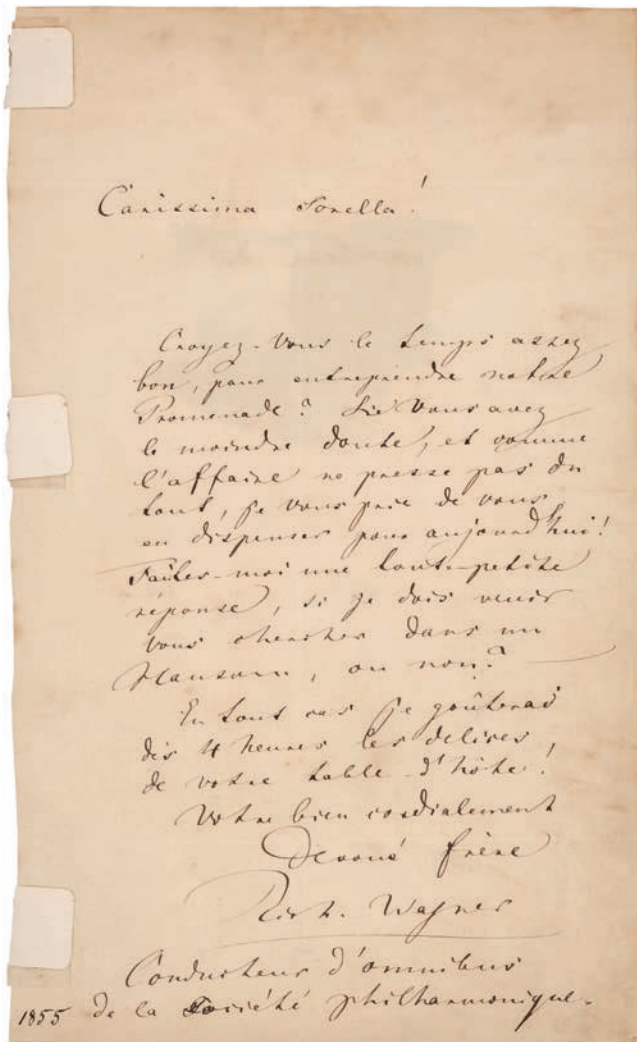 Carissima Sorella!
Croyez-vous le temps assez
bon, pour entreprendre notre
Promenade? Si vous avez
le moindre doute, et comme
l'affaire ne presse pas du
tout, je vous prie de vous
en dispenser pour aujourd'hui!
Faites-moi une toute-petite
réponse, si je dois venir
vous chercher dans un
Hansom, ou non?
En tout cas je goûterai
dès 4 heures les delices,
de votre table d'hôte!
Votre bien cordialement
devoué frère
Rich. Wagner
Conducteur d'omnibus
1855 de la Société philharmonique.